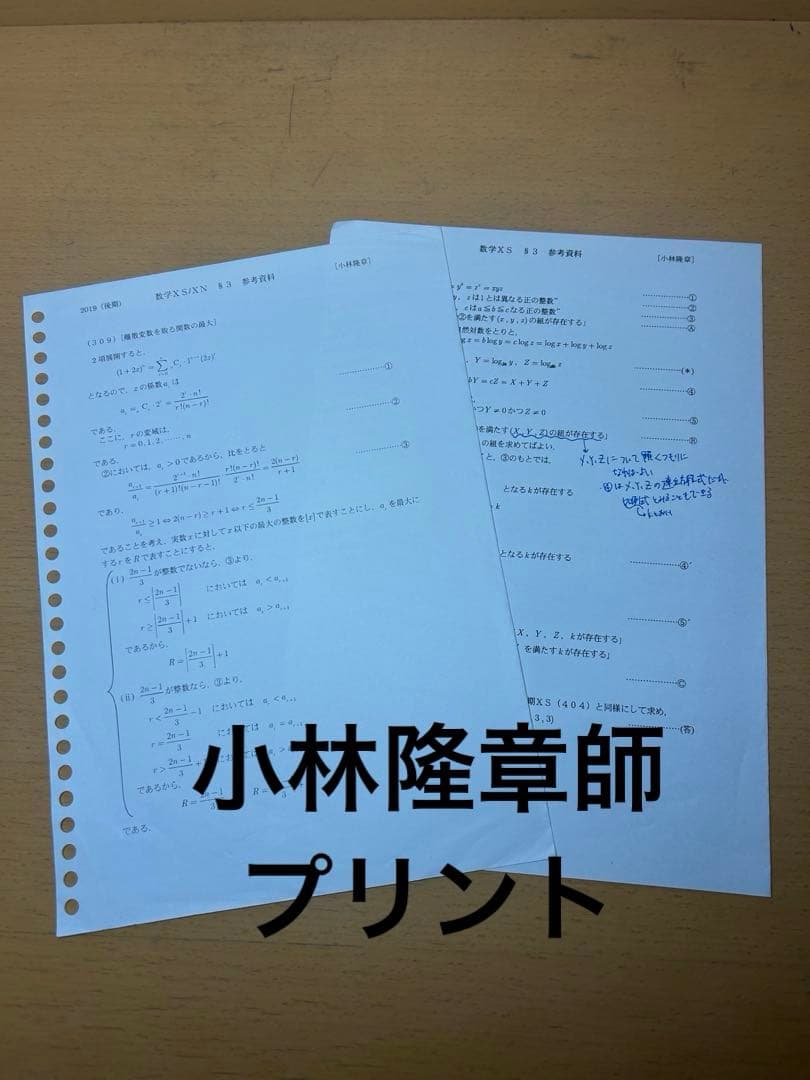 2019（後期） 数学XS/XN §3 参考資料 [小林隆章]
(309) [離散変数を取る関数の最大]
2項展開すると，
(1+2x)ⁿ=Σ ₙCᵣ·1ⁿ⁻ʳ(2x)ʳ
となるので，xの係数aᵣは
aᵣ=ₙCᵣ·2ʳ=2ʳ·n!/r!(n-r)! ①
である．
ここに，rの変域は，
r=0,1,2,……,n ②
である．
②においては，aᵣ>0であるから，比をとると
aᵣ₊₁/aᵣ=2ʳ⁺¹·n!/(r+1)!(n-r-1)!·r!(n-r)!/2ʳ·n!=2(n-r)/r+1 ③
であり，
aᵣ₊₁/aᵣ≧1⇔2(n-r)≧r+1⇔r≦2n-1/3
であることを考え，実数xに対してx以下の最大の整数を[x]で表すことにし，aᵣを最大に
するrをRで表すことにすると，
(i) 2n-1/3が整数でないなら，③より，
r≦[2n-1/3] においては aᵣ<aᵣ₊₁
r≧[2n-1/3]+1 においては aᵣ>aᵣ₊₁
であるから，
R=[2n-1/3]+1
(ii) 2n-1/3が整数なら，③より，
r≦2n-1/3-1 においては aᵣ<aᵣ₊₁
r=2n-1/3 においては aᵣ=aᵣ₊₁
r>2n-1/3
であるから，
R=2n-1/3
である．
数学XS §3 参考資料 [小林隆章]
yʸ=zᶜ=xyz ①
y，zは1とは異なる正の整数" ②
cはa≦b≦cなる正の整数" ③
②を満たす(x,y,z)の組が存在する」 Ⓐ
自然対数をとりと，
log x=b log y=c log z=log x+log y+log z
，Y=log y，Z=log z (*)
bY=cZ=X+Y+Z ④
つY≠0かつZ≠0 ⑤
を満たす(X,Y,Z)の組が存在する」 Ⓑ
の組を求めてばよい．
と，③のもとでは，
X,Y,Zについて解くつもりに
なればよい
④はX,Y,Zの連立方程式だが
となるkが存在する
k
となるkが存在する ④′
⑤′
X，Y，Z，kが存在する」
を満たすkが存在する」
Ⓒ
期XS（404）と同様にして求め，
,3,3) (答)
小林隆章師
プリント